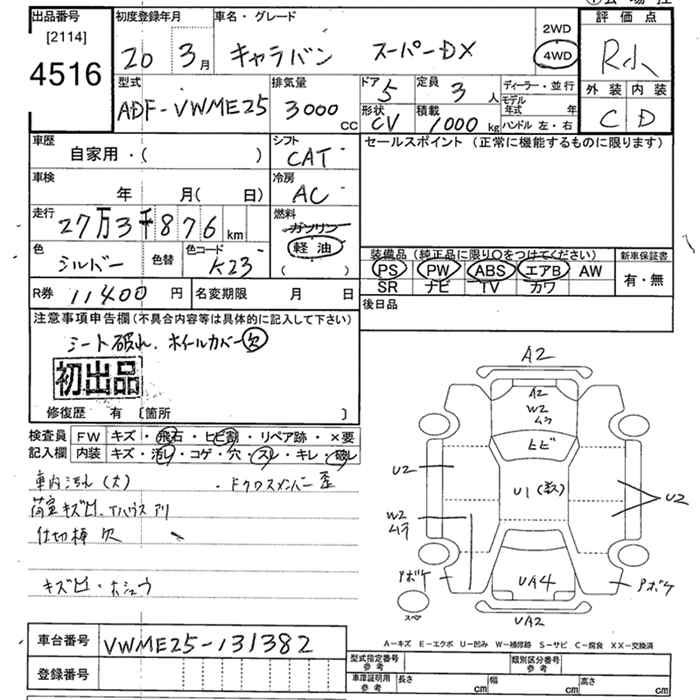 出品番号
[2114]
4516
初度登録年月
20 3月
車名・グレード
キャラバン スーパーDX
2WD
4WD
評価点
R小
外装 内装
C D
型式
ADF-VWME25
排気量
3000cc
ドア
5
定員
3人
形状
CV
積載
1000kg
ディーラー・並行
モデル年式 年
ハンドル 左・右
車歴
自家用・( )
シフト
CAT
車検
年 月( 日)
冷房
AC
走行
27万3千876km
燃料
ガソリン
軽油
( )
色
シルバー
色替
色コード
K23
R券 11400円
名変期限 月 日
セールスポイント(正常に機能するものに限ります)
装備品(純正品に限り○をつけてください)
PS PW ABS エアB AW
SR ナビ TV カワ
新車保証書
有・無
後日品
注意事項申告欄(不具合内容等は具体的に記入して下さい)
シート破れ、ホイールカバー欠
初出品
修復歴 有 〔箇所 〕
検査員記入欄
FW キズ・飛石・ヒビ割・リペア跡・×要
内装 キズ・汚レ・コゲ・穴・スレ・キレ・破レ
車内汚れ(大)
荷室キズ凹、
仕切棒 欠
キズ凹・ホシュウ
A2
A2
W2
ヒビ
U2
U1(数)
U2
W2
アボケ
アボケ
UA4
UA2
スペ
A-キズ E-エクボ U-凹み W-補修跡 S-サビ C-腐食 XX-交換済
車台番号
VWME25-131382
登録番号
型式指定番号 参考
類別区分番号 参考
車庫証明用 参考
長さ cm
幅 cm
高さ cm